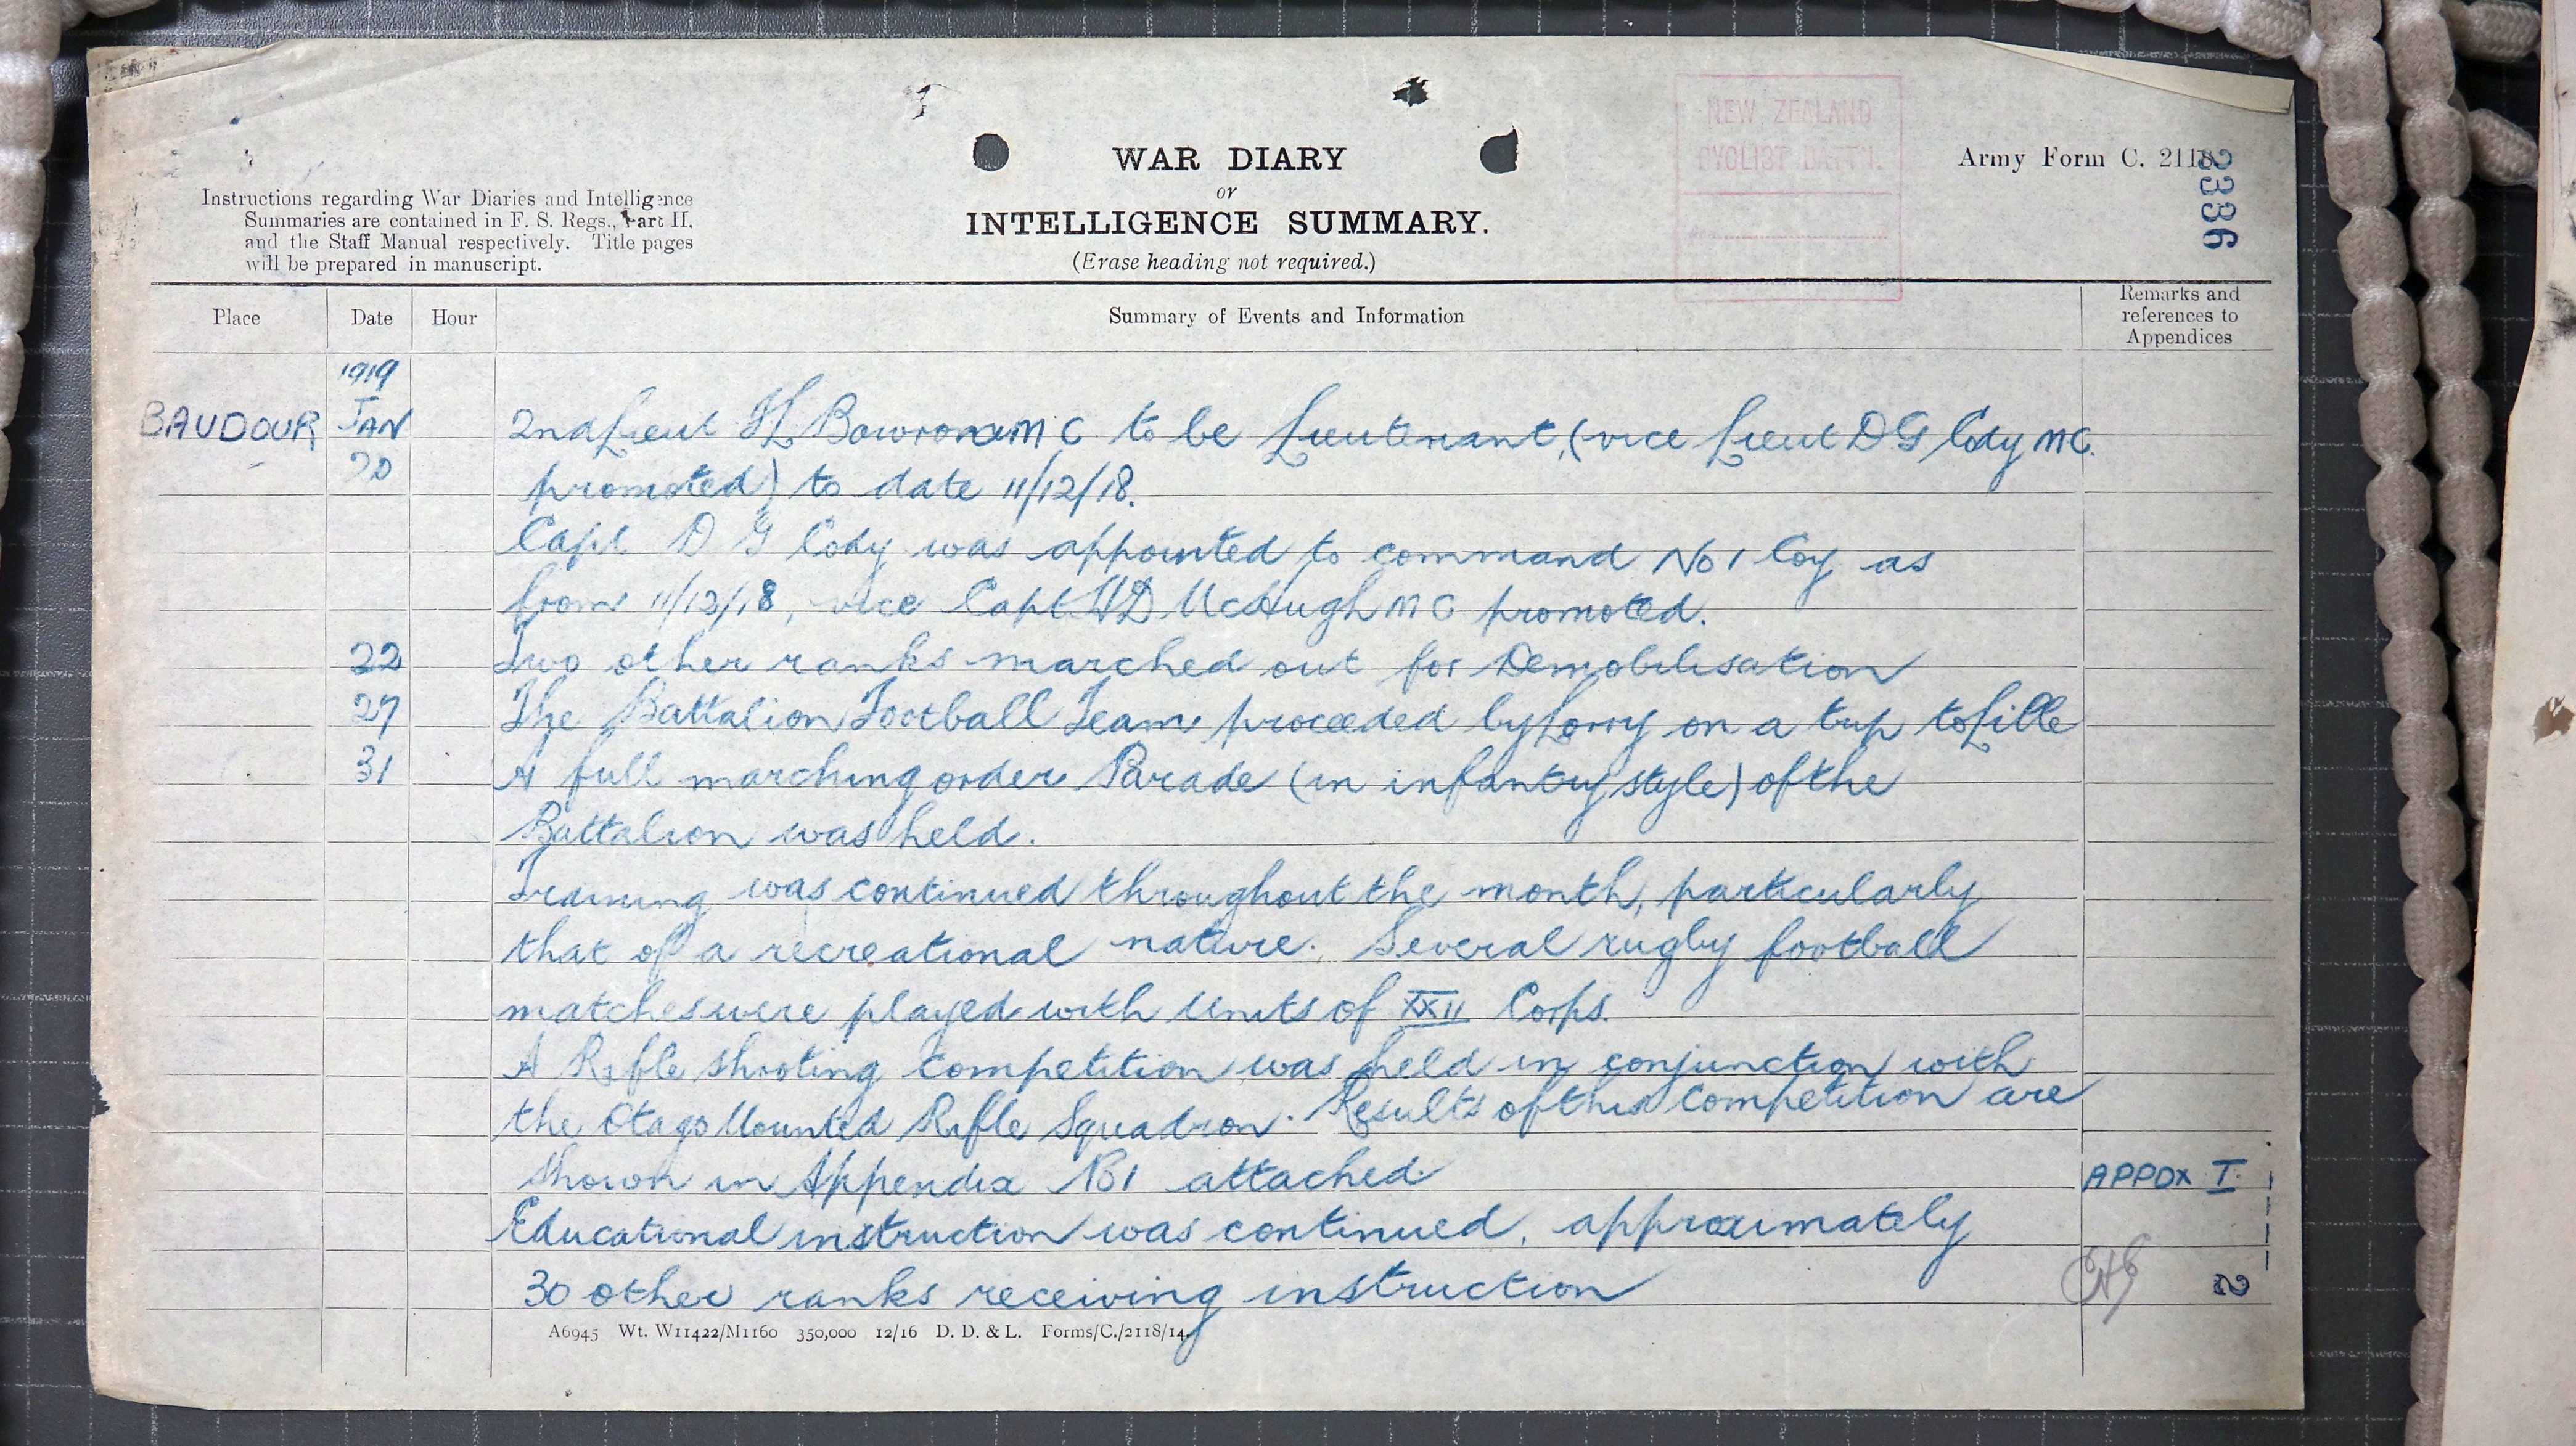 NEW ZEALAND
CYOLIST BATT'N.
WAR DIARY
or
INTELLIGENCE SUMMARY.
(Erase heading not required.)
Army Form C. 2118.
2336
Instructions regarding War Diaries and Intelligence
Summaries are contained in F. S. Regs., Part II.
and the Staff Manual respectively. Title pages
will be prepared in manuscript.
Place Date Hour Summary of Events and Information Remarks and references to Appendices
1919
BAUDOUR JAN 2nd Lieut HL Bowron MC to be Lieutenant, (vice Lieut D G Cody MC.
20 promoted) to date 11/12/18.
Capt D G Cody was appointed to command No 1 Coy as
from 11/12/18, vice Capt HD McHugh MC promoted.
22 Two other ranks marched out for Demobilisation
27 The Battalion Football Team proceeded by Lorry on a trip to Lille
31 A full marching order Parade (in infantry style) of the
Battalion was held.
Training was continued throughout the month, particularly
that of a recreational nature. Several rugby football
matches were played with units of XXII Corps.
A Rifle shooting competition was held in conjunction with
the Otago Mounted Rifle Squadron. Results of this Competition are
shown in Appendix No 1 attached APPDX I.
Educational instruction was continued, approximately
30 other ranks receiving instruction 2
A6945 Wt. W11422/M1160 350,000 12/16 D. D. & L. Forms/C./2118/14.